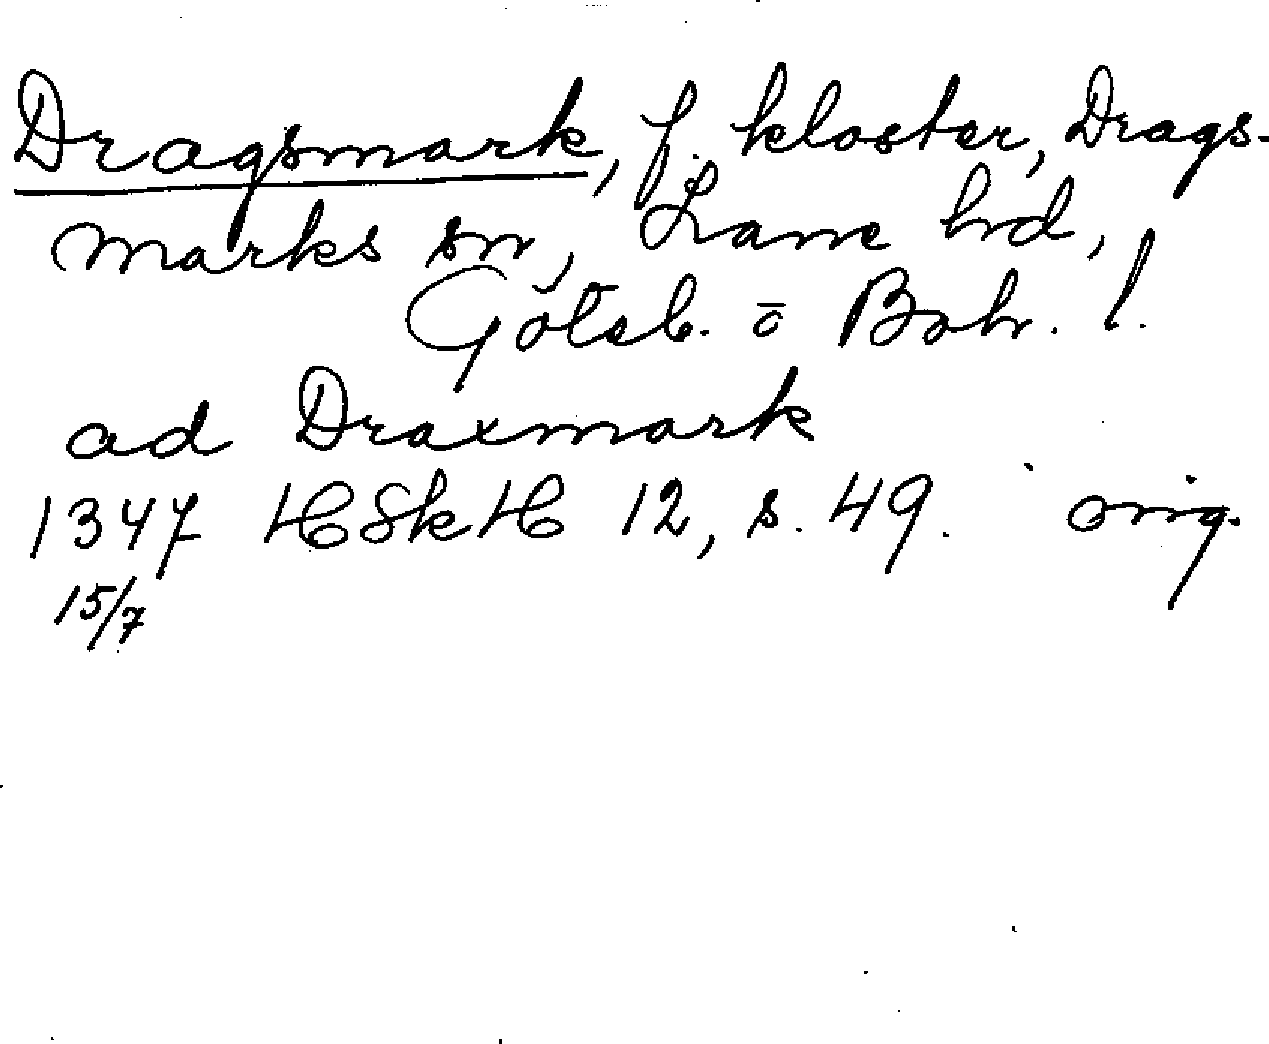 Dragsmark, f. kloster, Drags-
marks sn, Lane hd,
Götsb. o Boh. l.
ad Draxmark
1347 HSkH 12, s. 49. orig.
15/7